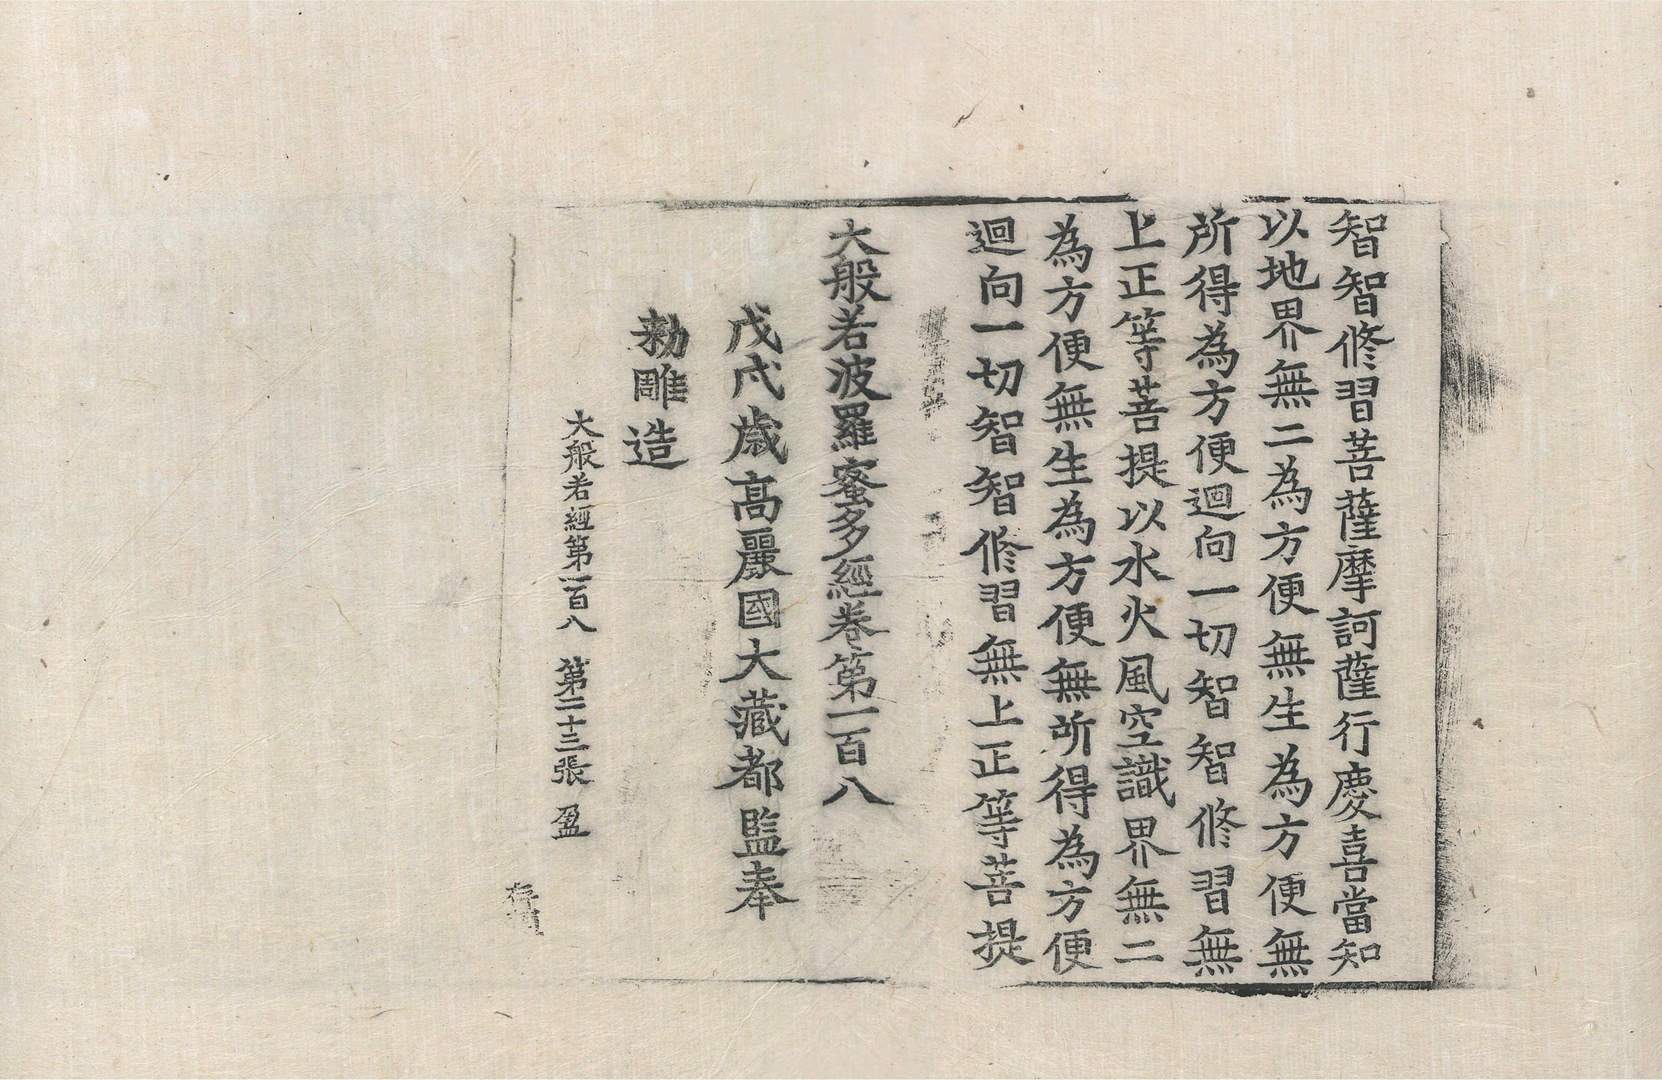 智智修習菩薩摩訶薩行慶喜當知
以地界無二為方便無生為方便無
所得為方便迴向一切智智修習無
上正等菩提以水火風空識界無二
為方便無生為方便無所得為方便
迴向一切智智修習無上正等菩提
大般若波羅蜜多經卷第一百八
戊戌歲高麗國大藏都監奉
勑雕造
大般若經第一百八 第二十三張 盈